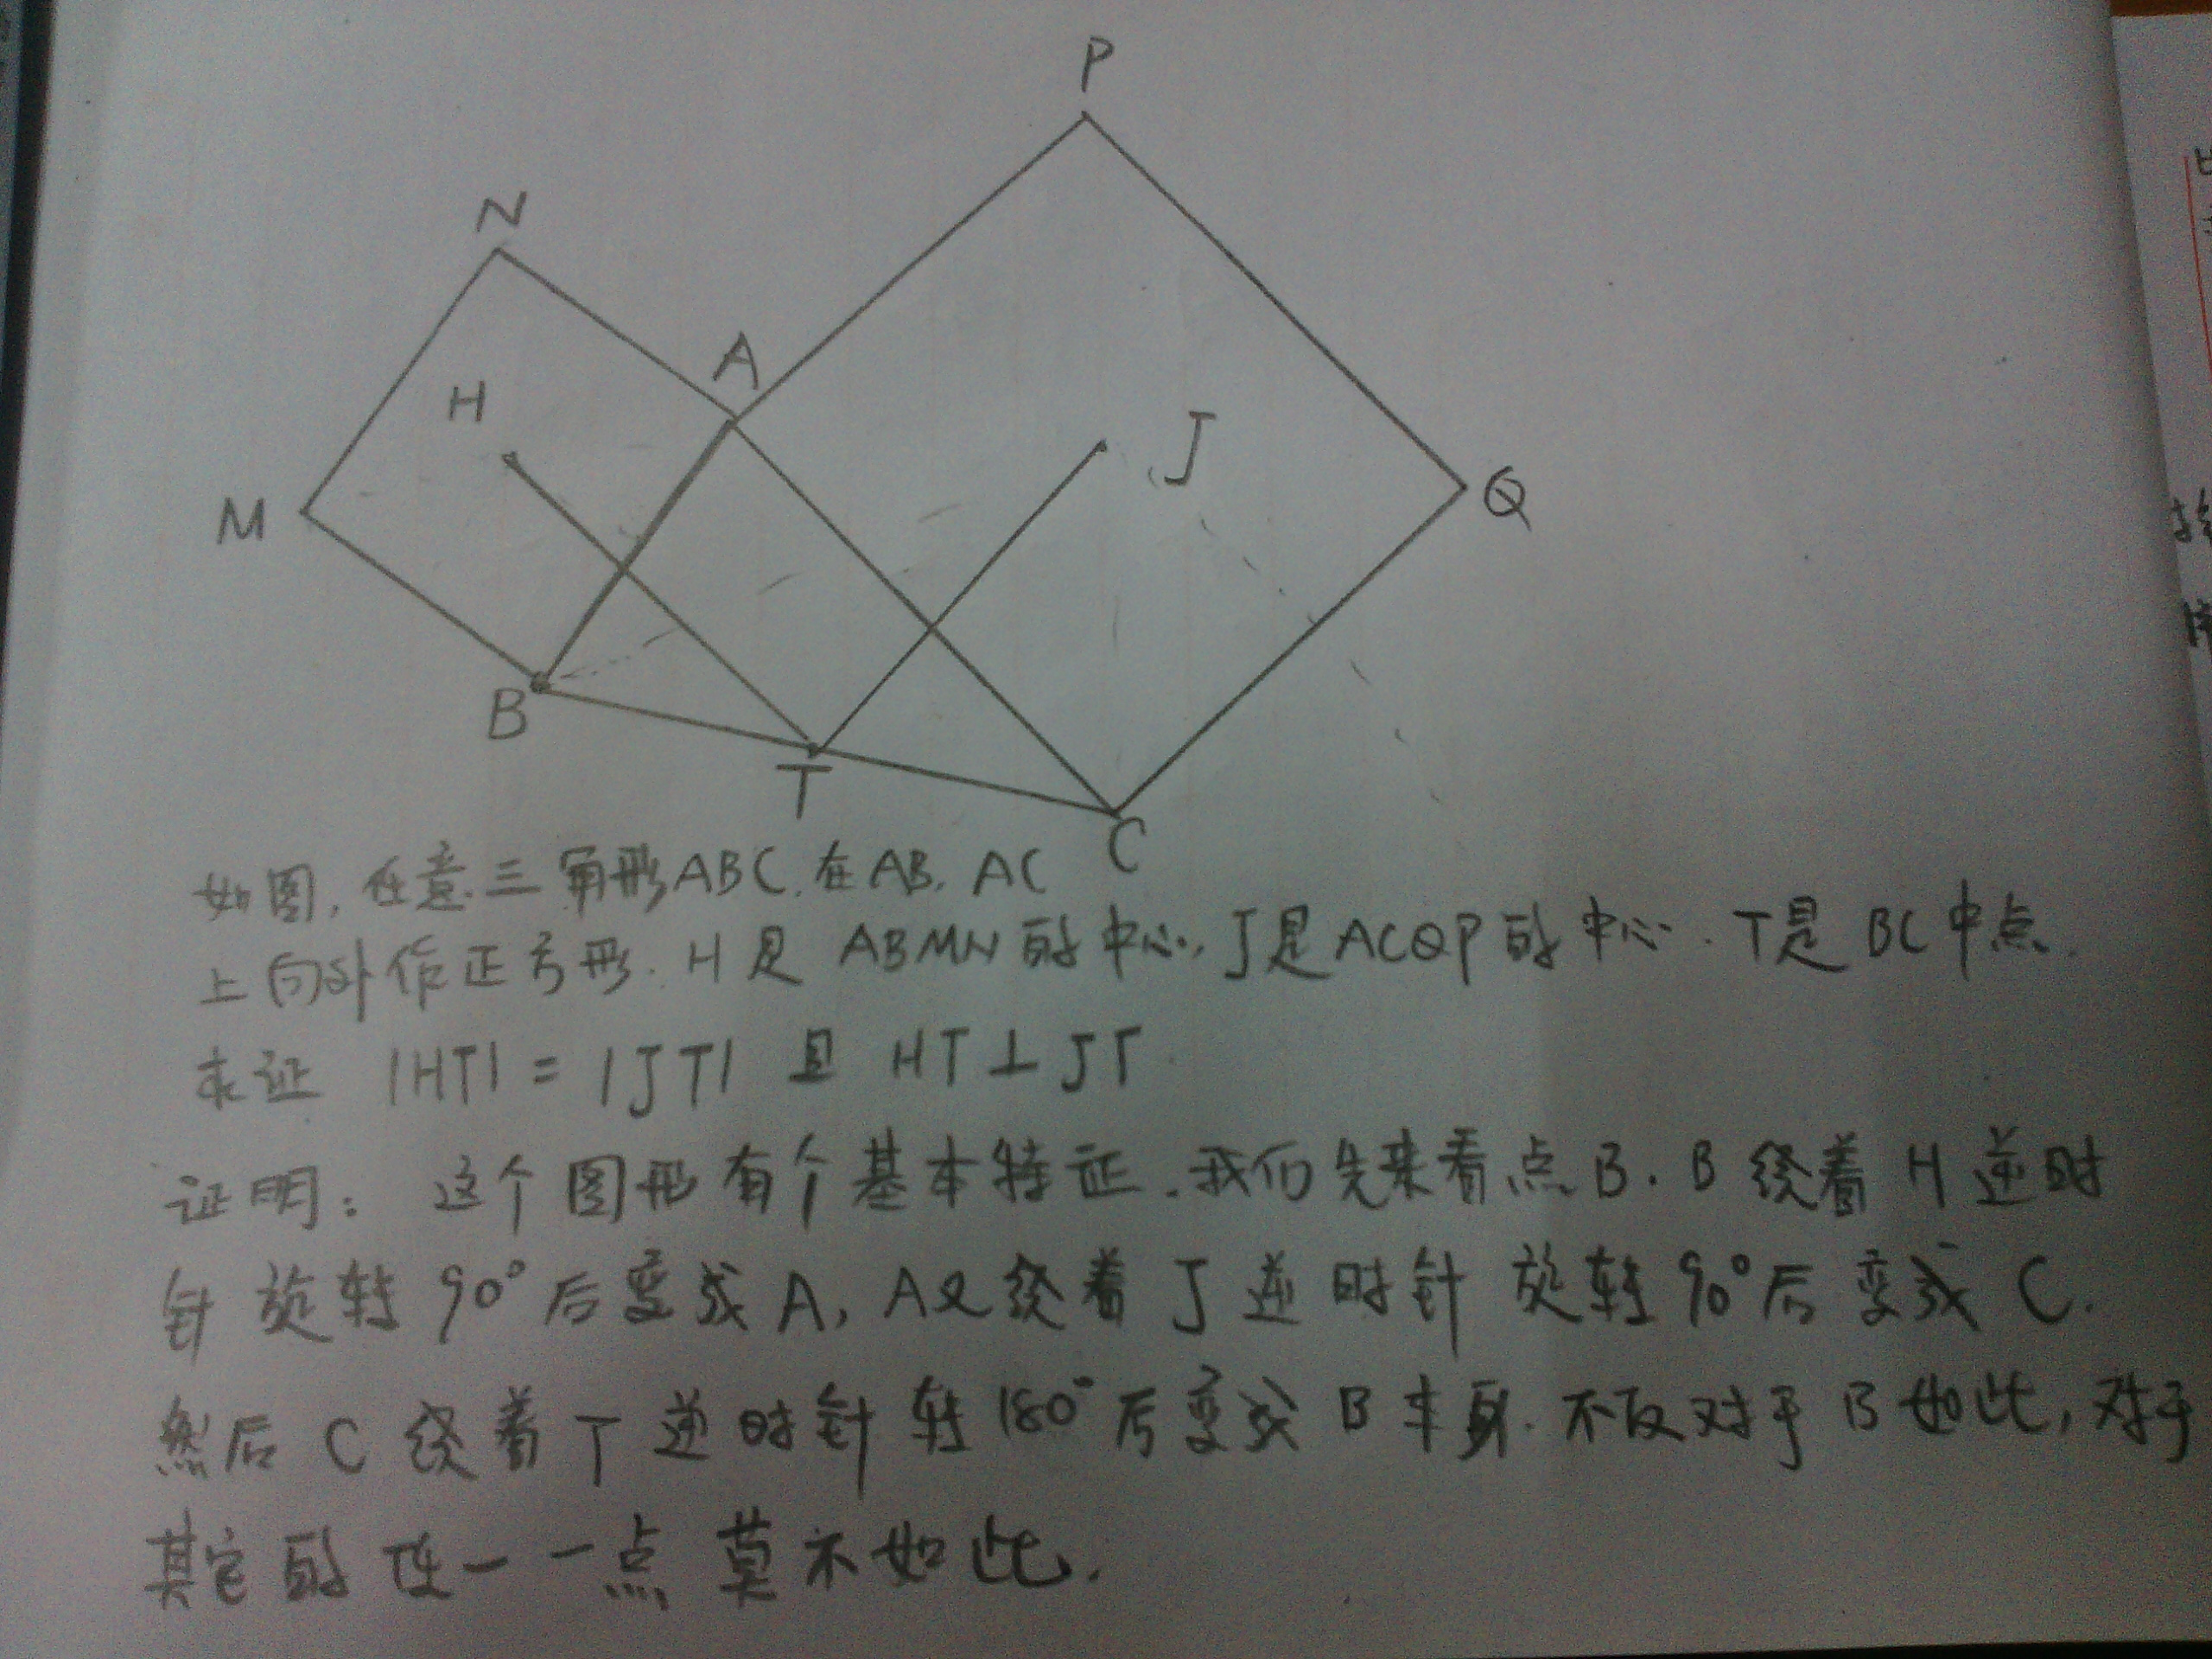 P
N
A
H
J
M
Q
B
T
C
如图,任意三角形ABC.在AB,AC
上向外作正方形.H是ABMN的中心,J是ACQP的中心.T是BC中点.
求证 |HT|=|JT| 且 HT⊥JT.
证明: 这个图形有个基本特征.我们先来看点B.B绕着H逆时
针旋转90°后变成A,A又绕着J逆时针旋转90°后变成C.
然后C绕着T逆时针转180°后变成B本身.不仅对于B如此,对于
其它的任一一点莫不如此.